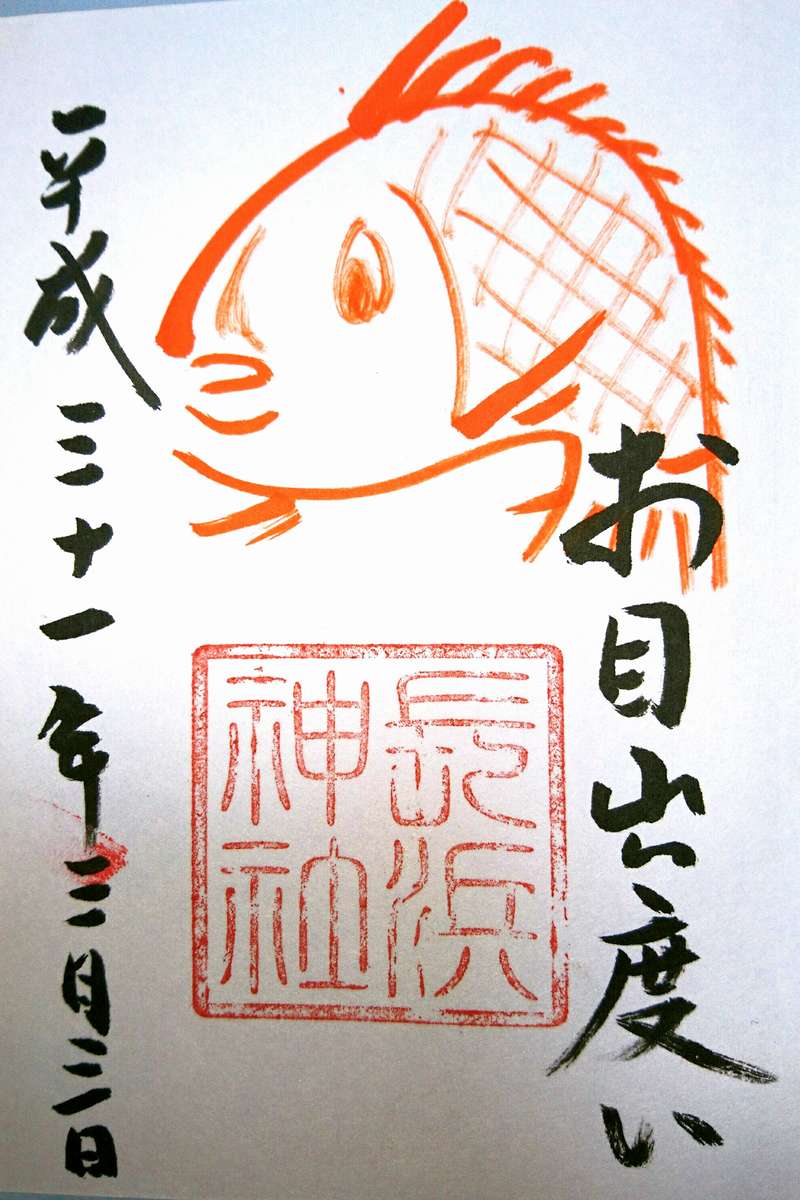 お目出度い
長浜
神社
平成三十一年三月三日